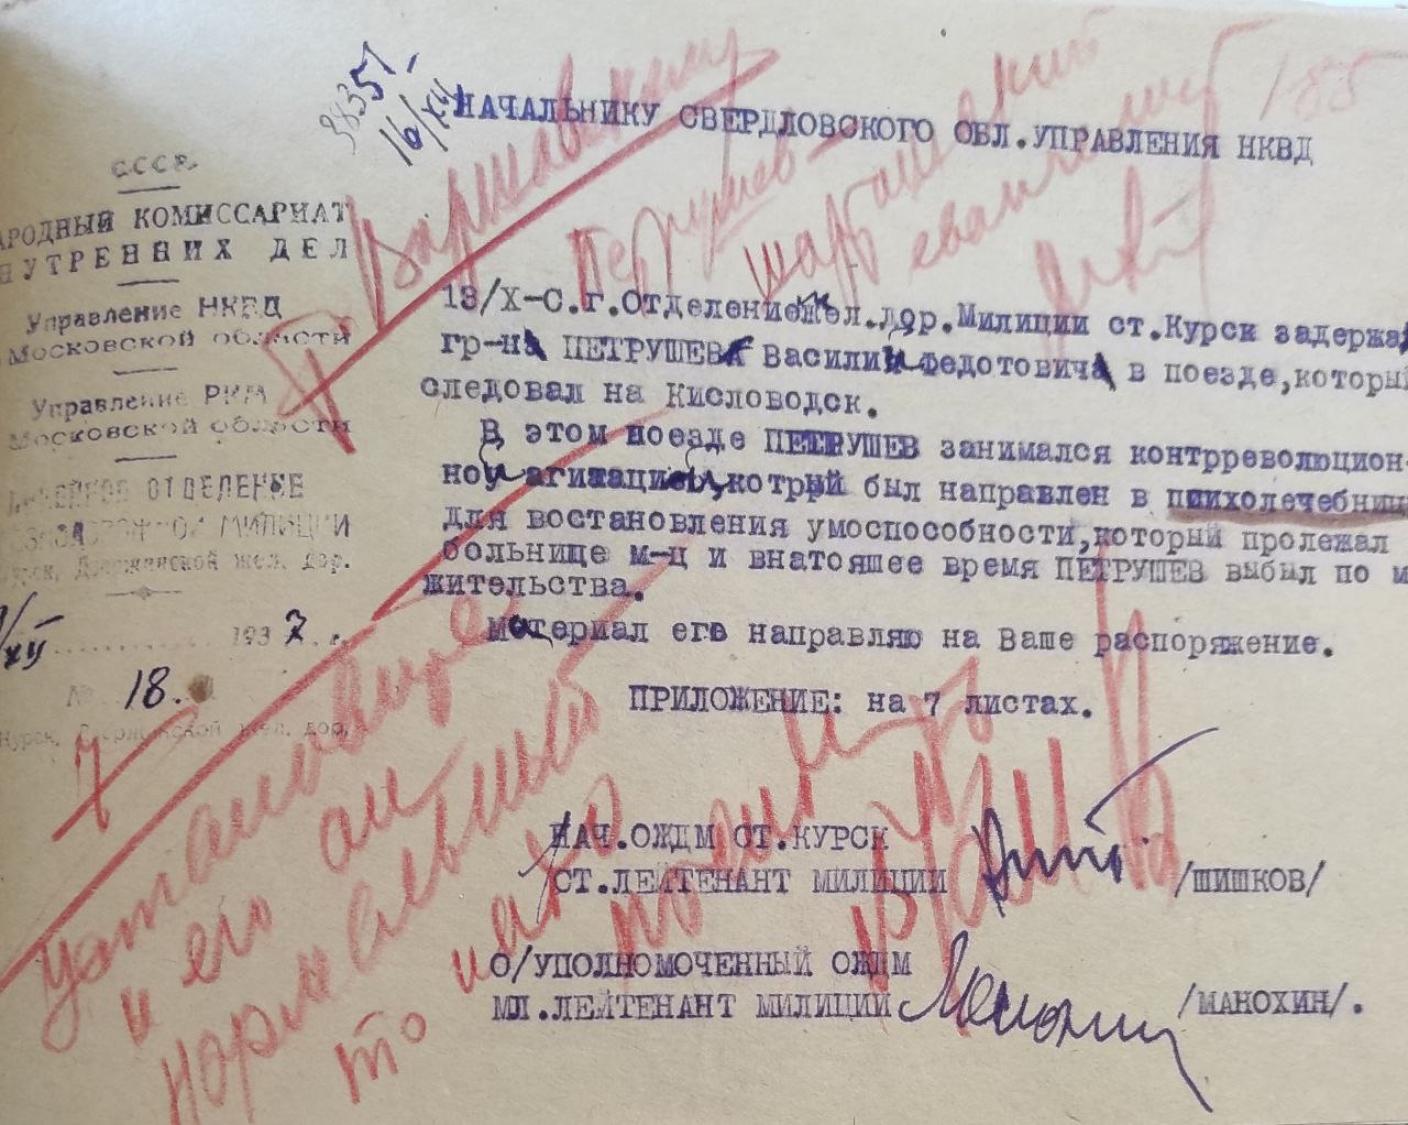 38351
16/XII
НАЧАЛЬНИКУ СВЕРДЛОВСКОГО ОБЛ.УПРАВЛЕНИЯ НКВД
185
С.С.С.Р.
АРОДНЫЙ КОМИССАРИАТ
НУТРЕННИХ ДЕЛ
Управление НКВД
Московской области
Управление РКМ
Московской области
ОТДЕЛЕНИЕ
МИЛИЦИИ
Дзержинской жел. дор.
/XII 1937 г.
№ 18.
Курск, Дзержинской жел. дор.
Варшавскому
Петрушев
13/X-С.г.Отделением жел.дор.Милиции ст.Курск задержа
гр-н ПЕТРУШЕВ Василий Федотович в поезде,который
следовал на Кисловодск.
В этом поезде ПЕТРУШЕВ занимался контрреволюцион-
ной агитацией,котрый был направлен в психолечебниц
для востановления умоспособности,который пролежал
больнице м-ц и внатоящее время ПЕТРУШЕВ выбыл по м
жительства.
Материал его направляю на Ваше распоряжение.
ПРИЛОЖЕНИЕ: на 7 листах.
НАЧ.ОЖДМ СТ.КУРСК
СТ.ЛЕЙТЕНАНТ МИЛИЦИИ /ШИШКОВ/
О/УПОЛНОМОЧЕННЫЙ ОЖДМ
МЛ.ЛЕЙТЕНАНТ МИЛИЦИИ /МАНОХИН/.
установите
и его
нормальный
то надо